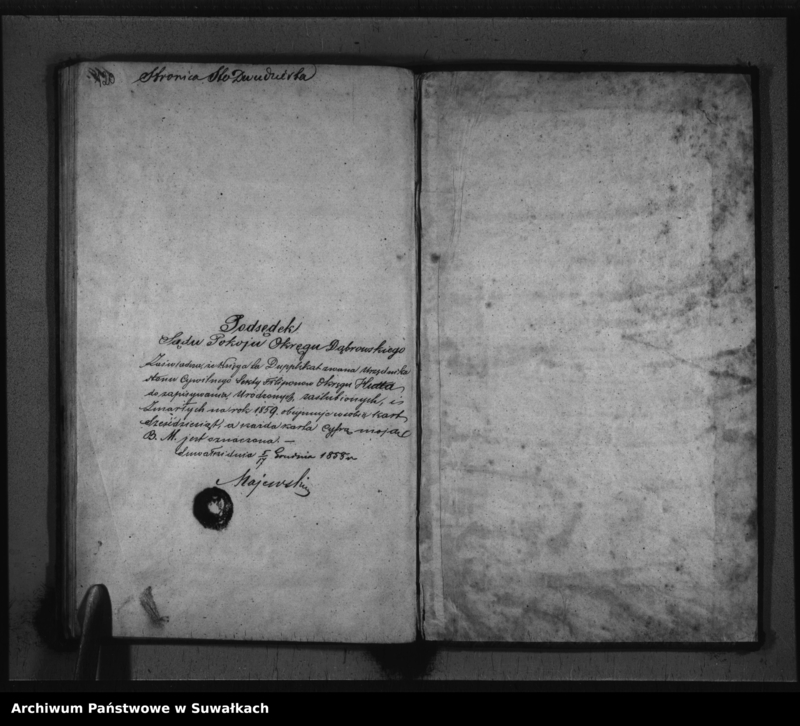 120
Stronica Sto Dwudziesta
Podsędek
Sądu Pokoju Okręgu Dąbrowskiego
Zaświadcza, iż Księga ta Dupplikat zwana Urzędnika
Stanu Cywilnego Sekty Filiponów Okręgu Hutta
do zapisywania, Urodzonych, zaślubionych, i
Zmarłych na rok 1859. obejmuje w sobie kart
Sześćdziesiąt, a każda karta cyfrą moją
B. M. jest oznaczona. —
Suwałki dnia 5/17 Grudnia 1858 r
Majewski
Archiwum Państwowe w Suwałkach